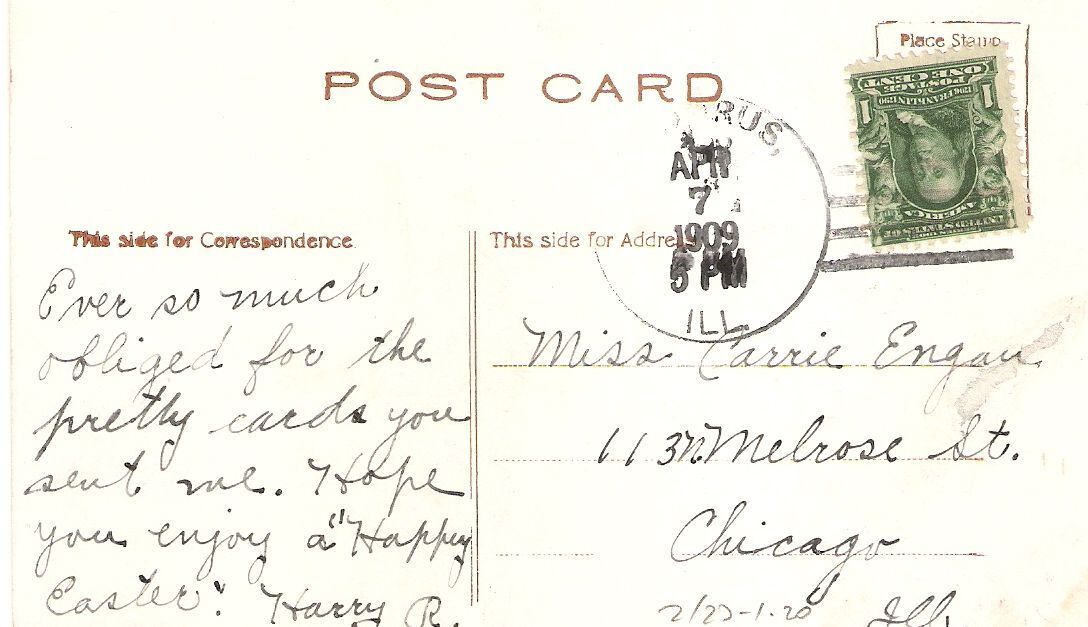 Place Stamp
POST CARD
ONE CENT
POSTAGE
1706 FRANKLIN 1790
1 1
AMERICA
UNITED STATES OF
APR
7
1909
5 PM
ILL.
This side for Correspondence
This side for Address
Ever so much
obliged for the
pretty cards you
sent me. Hope
you enjoy a "Happy
Easter". Harry R.
Miss Carrie Engan
Melrose St.
Chicago
Ill.